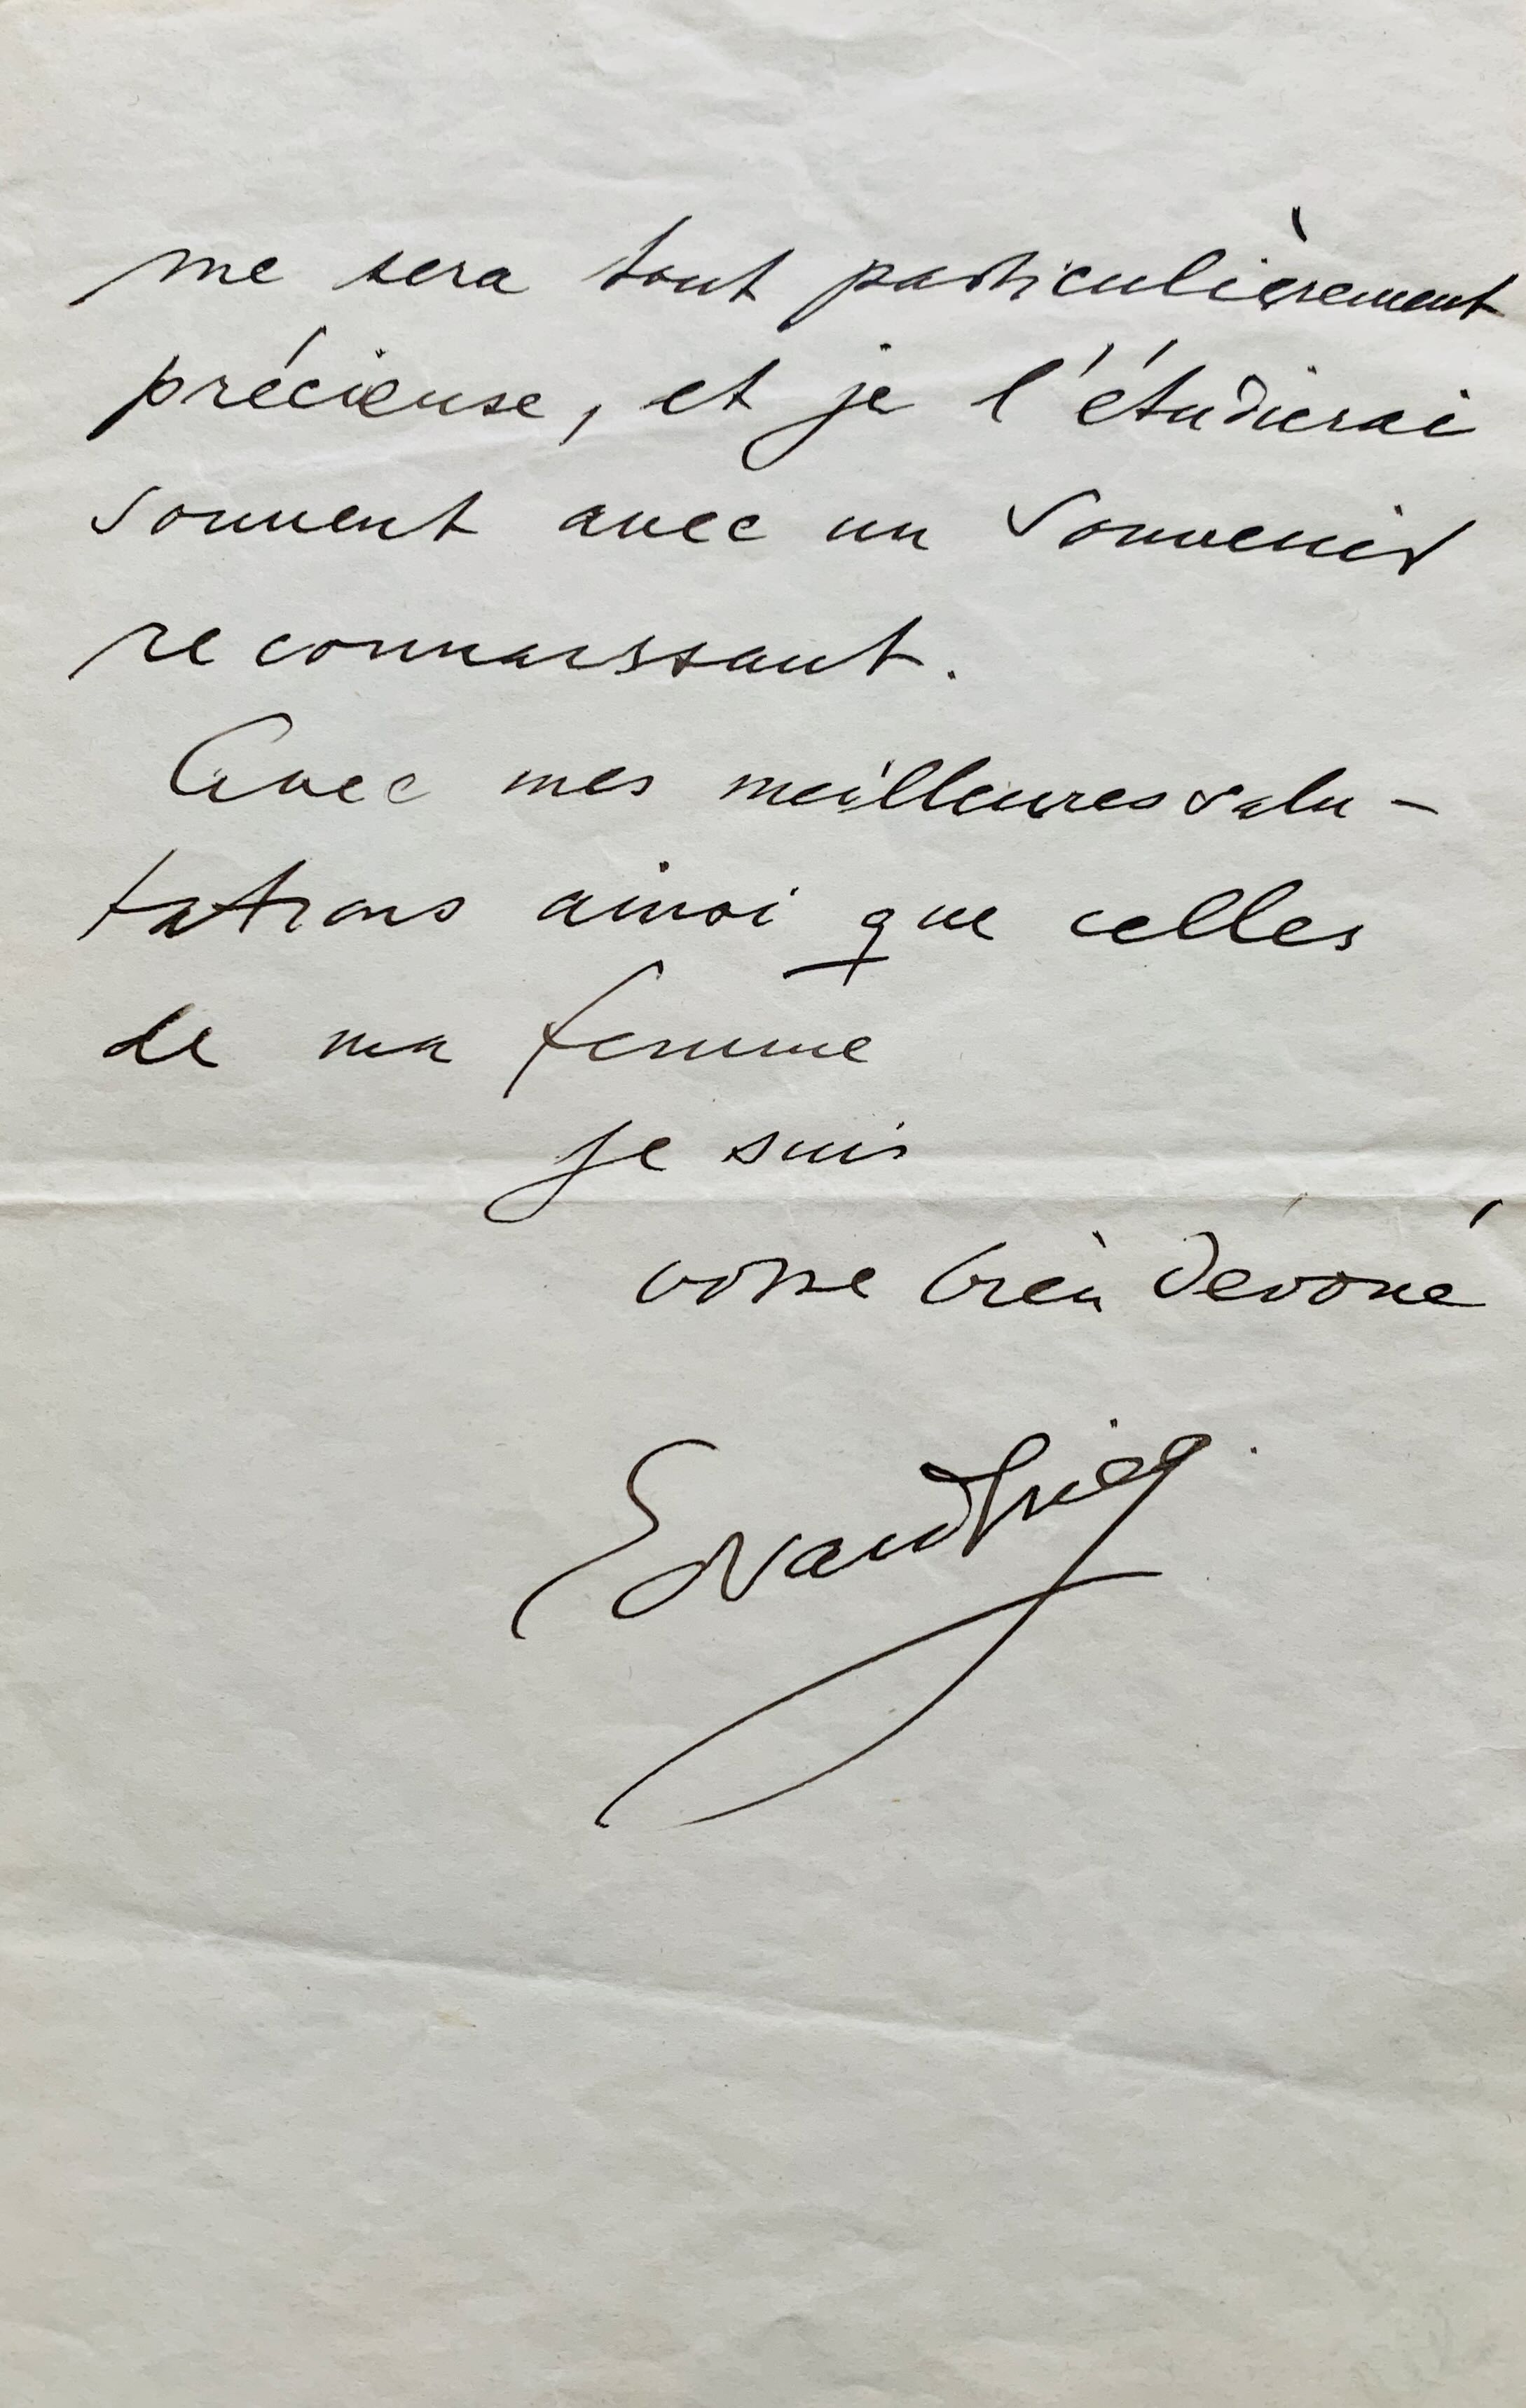 me sera tout particulièrement
précieuse, et je l'étudierai
souvent avec un souvenir
reconnaissant.
Avec mes meilleures salu-
tations ainsi que celles
de ma femme
je suis
votre bien dévoué
Edvard Grieg.